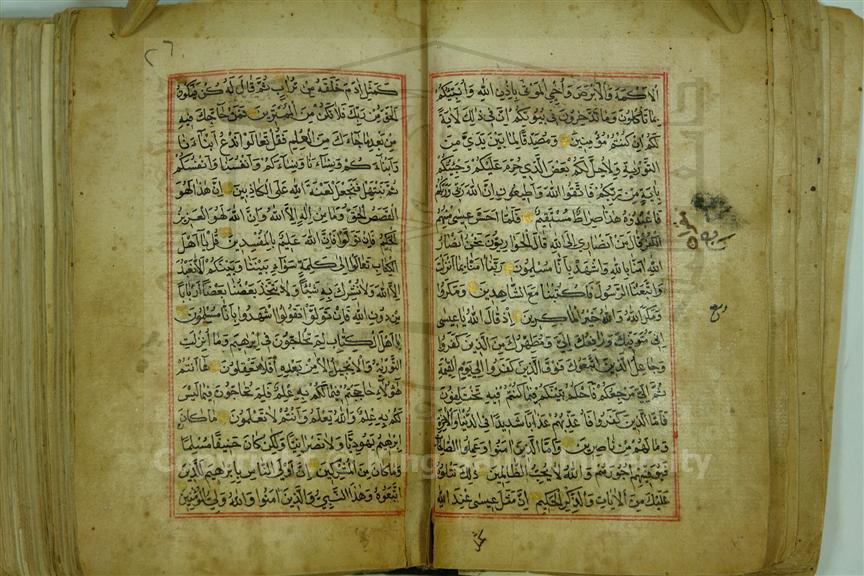 الاكمه والابرص واحي الموتى باذن الله وانبئكم
بما تاكلون وما تدخرون في بيوتكم ان في ذلك لاية
لكم ان كنتم مؤمنين ومصدقا لما بين يدي من
التورية ولاحل لكم بعض الذي حرم عليكم وجئتكم
باية من ربكم فاتقوا الله واطيعون ان الله ربي وربكم
فاعبدوه هذا صراط مستقيم فلما احس عيسى منهم
الكفر قال من انصاري الى الله قال الحواريون نحن انصار
الله امنا بالله واشهد بانا مسلمون ربنا امنا بما انزلت
واتبعنا الرسول فاكتبنا مع الشاهدين ومكروا
ومكر الله والله خير الماكرين اذ قال الله يا عيسى
اني متوفيك ورافعك الي ومطهرك من الذين كفروا
وجاعل الذين اتبعوك فوق الذين كفروا الى يوم القيمة
ثم الي مرجعكم فاحكم بينكم فيما كنتم فيه تختلفون
فاما الذين كفروا فاعذبهم عذابا شديدا في الدنيا والاخرة
وما لهم من ناصرين واما الذين امنوا وعملوا الصالحات
فيوفيهم اجورهم والله لا يحب الظالمين ذلك نتلوه
عليك من الايات والذكر الحكيم ان مثل عيسى عند الله
كمثل
٢٦
كمثل ادم خلقه من تراب ثم قال له كن فيكون
الحق من ربك فلا تكن من الممترين فمن حاجك فيه
من بعد ما جاءك من العلم فقل تعالوا ندع ابناءنا
وابناءكم ونساءنا ونساءكم وانفسنا وانفسكم
ثم نبتهل فنجعل لعنة الله على الكاذبين ان هذا لهو
القصص الحق وما من اله الا الله وان الله لهو العزيز
الحكيم فان تولوا فان الله عليم بالمفسدين قل يا اهل
الكتاب تعالوا الى كلمة سواء بيننا وبينكم الا نعبد
الا الله ولا نشرك به شيئا ولا يتخذ بعضنا بعضا اربابا
من دون الله فان تولوا فقولوا اشهدوا بانا مسلمون
يا اهل الكتاب لم تحاجون في ابرهيم وما انزلت
التورية والانجيل الا من بعده افلا تعقلون ها انتم
هؤلاء حاججتم فيما لكم به علم فلم تحاجون فيما ليس
لكم به علم والله يعلم وانتم لا تعلمون ما كان
ابرهيم يهوديا ولا نصرانيا ولكن كان حنيفا مسلما
وما كان من المشركين ان اولى الناس بابرهيم للذين
اتبعوه وهذا النبي والذين امنوا والله ولي المؤمنين